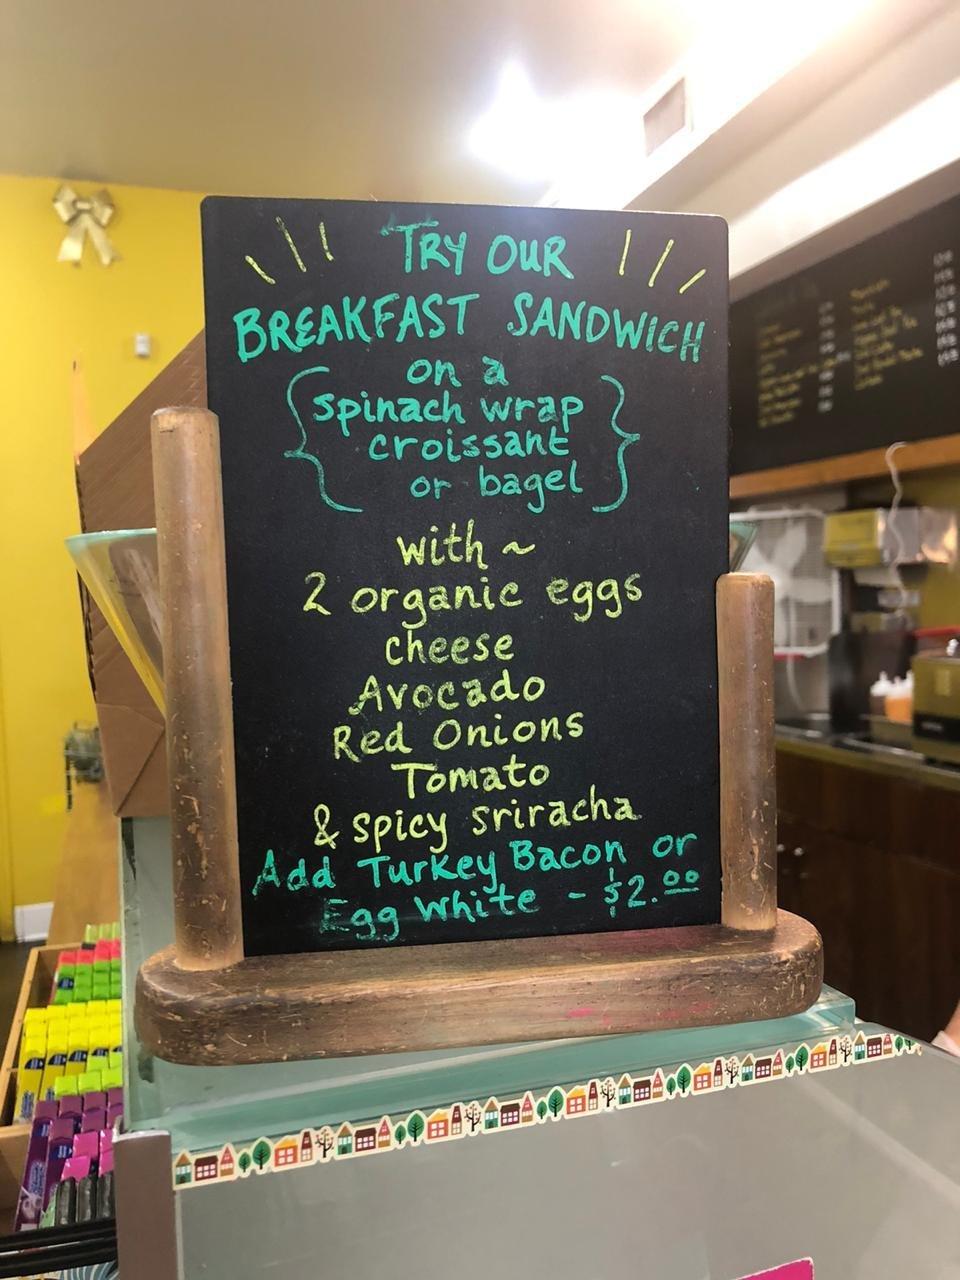 TRY OUR
BREAKFAST SANDWICH
on a
spinach wrap
croissant
or bagel
with ~
2 organic eggs
cheese
Avocado
Red Onions
Tomato
& spicy sriracha
Add Turkey Bacon or
Egg White - $2.00